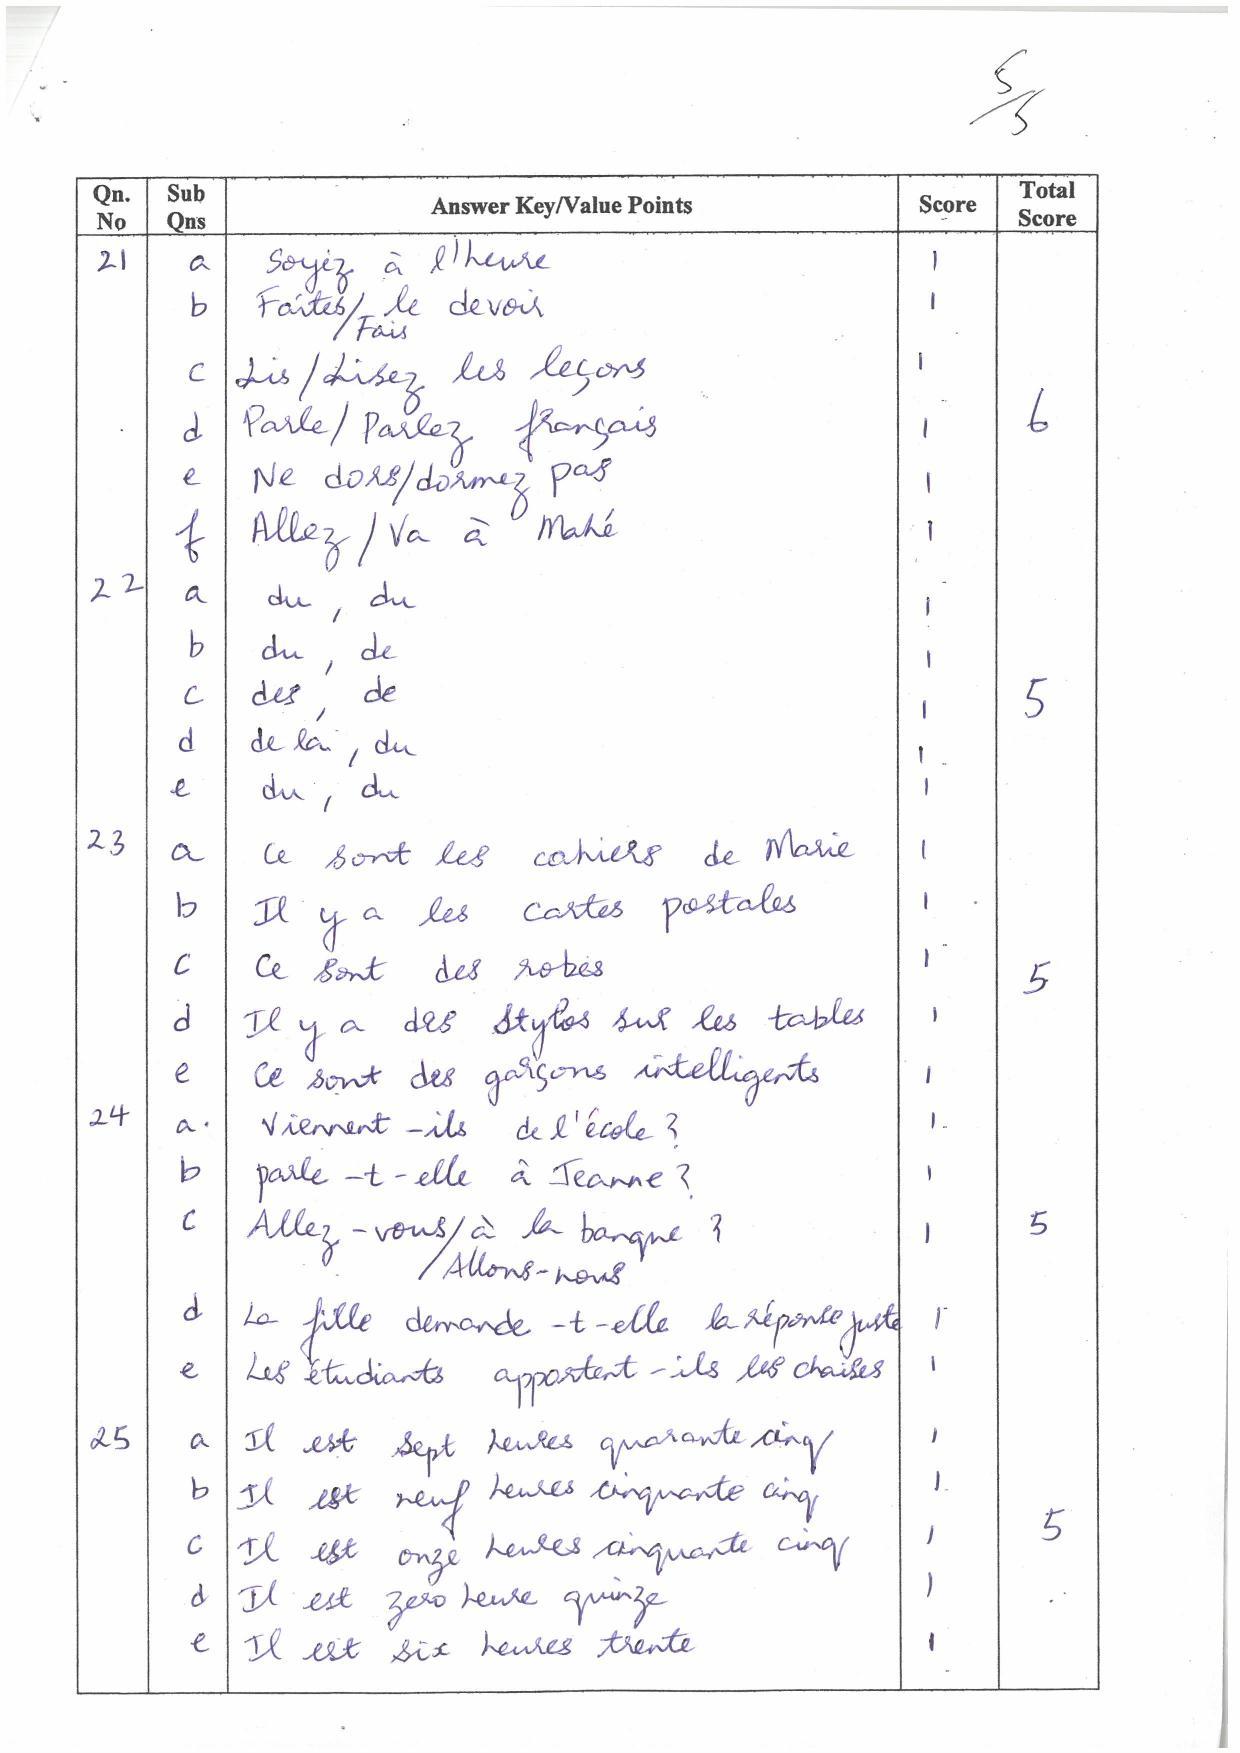 5/5
Qn. No Sub Qns Answer Key/Value Points Score Total Score
21 a Soyez à l'heure 1
b Faites/ le devoir 1
/Fais
c Lis/Lisez les leçons 1
d Parle/Parlez français 1 6
e Ne dors/dormez pas 1
f Allez/Va à Mahé 1
22 a du, du 1
b du, de 1
c des, de 1 5
d de la, du 1
e du, du 1
23 a Ce sont les cahiers de Marie 1
b Il y a les cartes postales 1
c Ce sont des robes 1 5
d Il y a des stylos sur les tables 1
e Ce sont des garçons intelligents 1
24 a. Viennent-ils de l'école ? 1
b parle-t-elle à Jeanne ? 1
c Allez-vous/à la banque ? 1 5
/Allons-nous
d La fille demande-t-elle la réponse juste 1
e Les étudiants apportent-ils les chaises 1
25 a Il est sept heures quarante cinq 1
b Il est neuf heures cinquante cinq 1
c Il est onze heures cinquante cinq 1 5
d Il est zero heure quinze 1
e Il est six heures trente 1